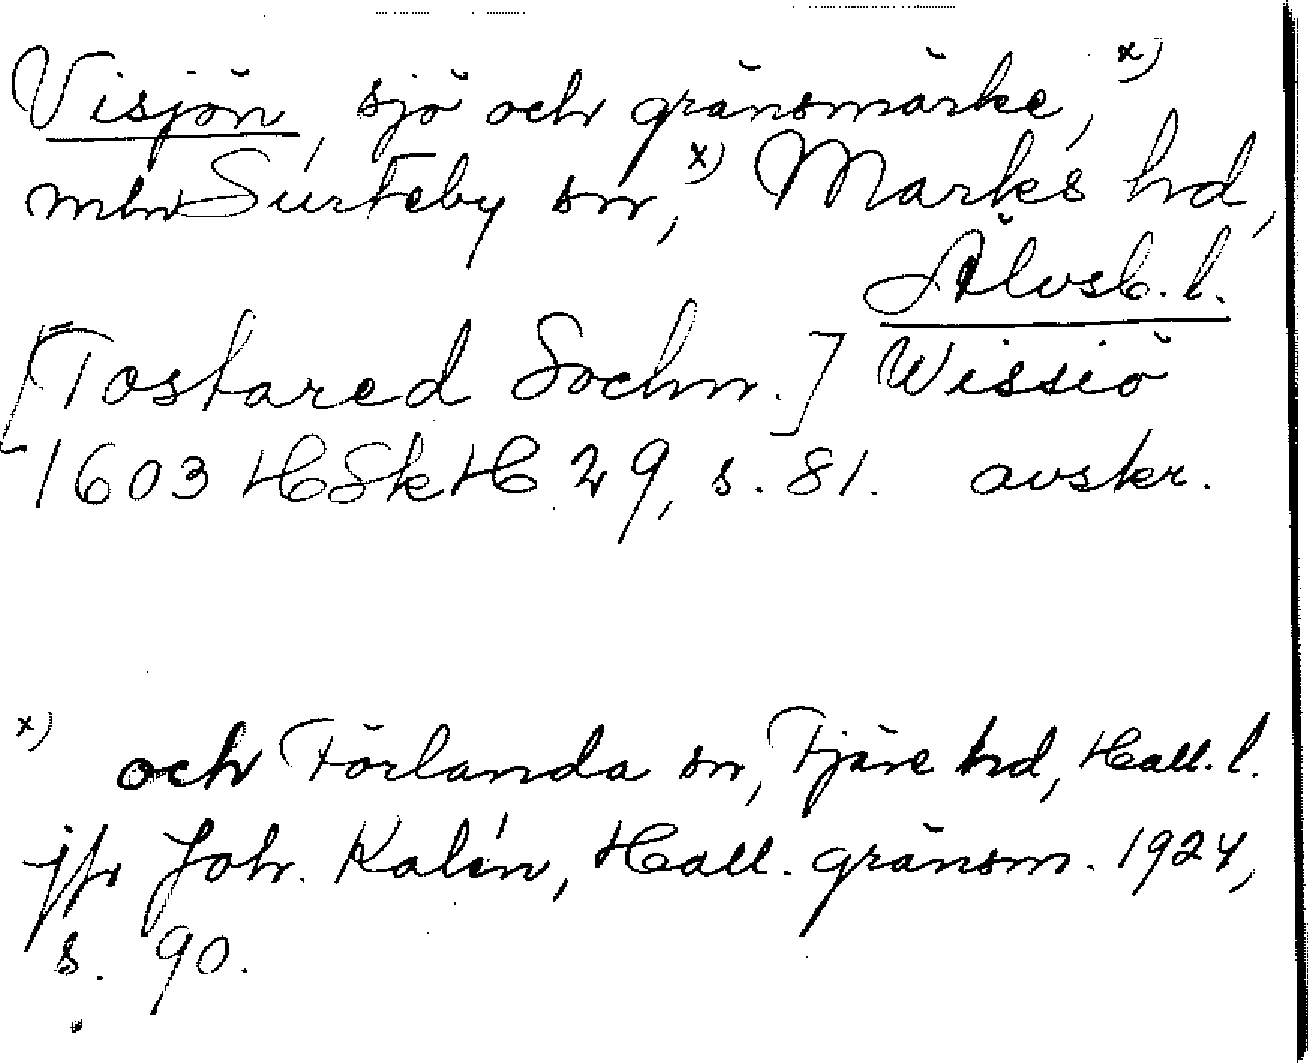 Visjön, sjö och gränsmärke, x)
mln Surteby sn, x) Marks hd,
Älvsb. l.
[Tostared Sochn.] Wissiö
1603 HSkH 29, s. 81. avskr.
x) och Förlanda sn, Fjäre hd, Hall. l.
jfr Joh. Kalén, Hall. gränsm. 1924,
s. 90.